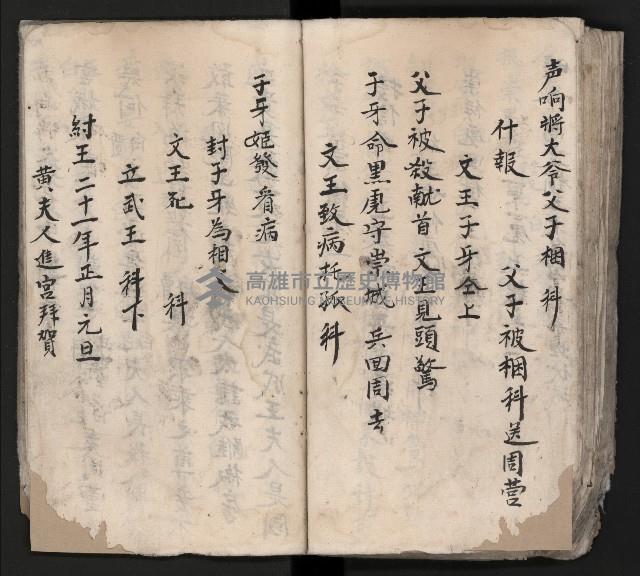 声响将大爷父子梱　科
什報　　父子被梱科送周营
文王子牙仝上
父子被殺献首　文王見頭驚
子牙命黑虎守崇城　兵回周去
文王致病托孤科
子牙姬發看病
封子牙為相父
文王死　科
立武王　科下
紂王二十一年正月元旦
黄夫人進宮拜賀
高雄市立歷史博物館
KAOHSIUNG MUSEUM OF HISTORY